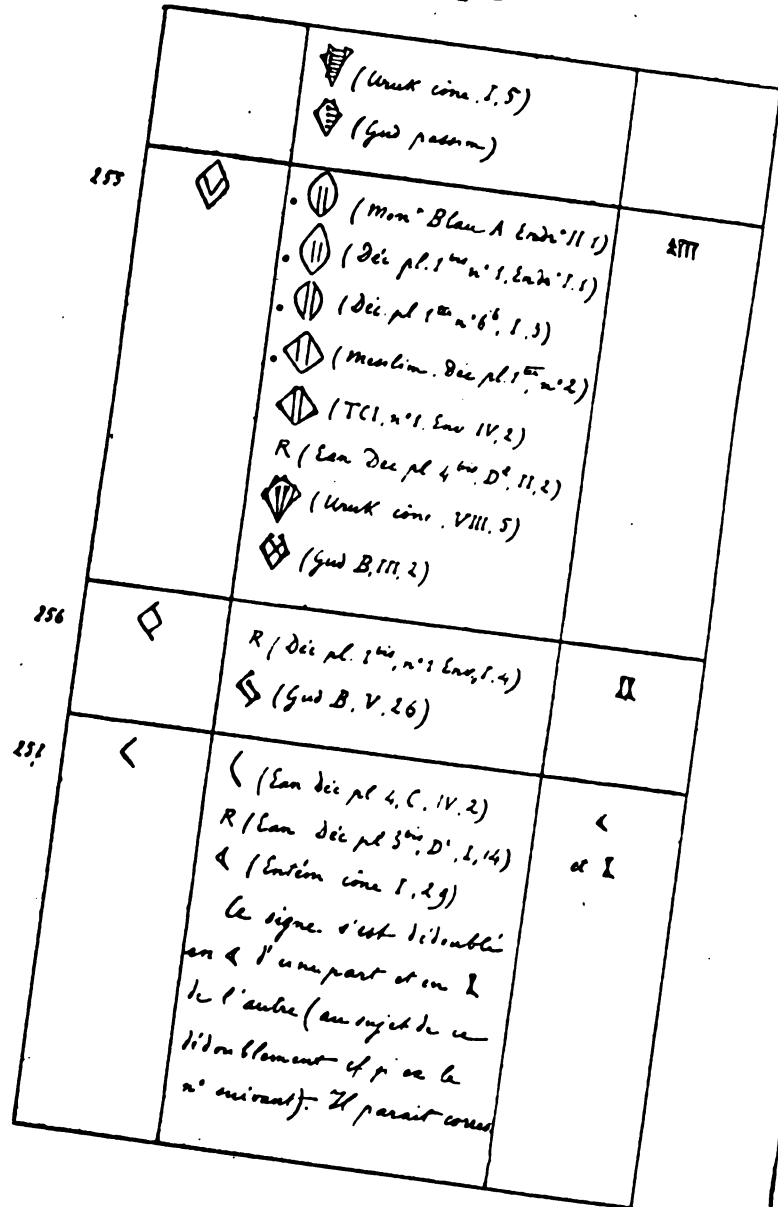 (Uruk cône. I, 5)
(Gud passim)
255
(Monᵗ Blau A Endrᵗ II 1)
(Déc pl. 1ᵇⁱˢ nº 1, Endrᵗ I.1)
(Déc. pl 1ᵗᵉʳ nº 6ᵇ, I, 3)
(Mesilim. Déc pl. 1ᵗᵉʳ, nº 2)
(TCI, nº 1. Env IV, 2)
R (Ean Déc pl 4ᵇⁱˢ, D², II, 2)
(Uruk cône. VIII, 5)
(Gud B, III, 2)
256
R (Déc pl. 1ᵇⁱˢ, nº 1 Env, I. 4)
(Gud B. V. 26)
(Ean Déc pl 4, C, IV, 2)
R (Ean Déc pl 3ᵇⁱˢ, D¹, I, 14)
et
(Entém cône I, 29)
Ce signe s'est dédoublé
en d'une part et en
de l'autre (au sujet de ce
dédoublement cf le
nº suivant). Il parait corres